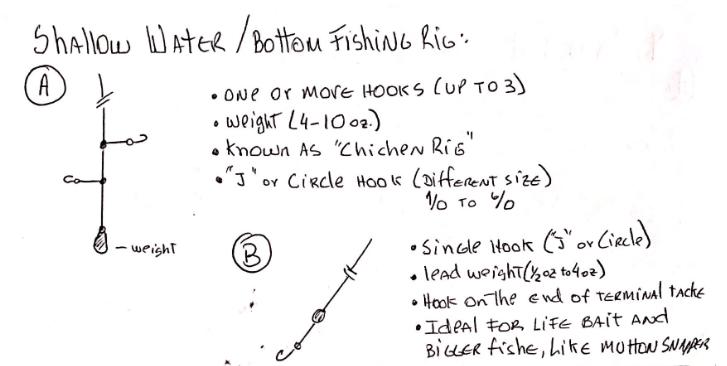 Shallow Water / Bottom Fishing Rig:
A
• One or more Hooks (up to 3)
• weight (4-10 oz.)
• Known as "Chichen Rig"
• "J" or Circle Hook (Different size)
1/0 to 6/0
- weight
B
• Single Hook ("J" or Circle)
• lead weight (1/2 oz to 4 oz)
• Hook on the end of terminal tacke
• Ideal for life bait and
bigger fishe, like mutton snapper